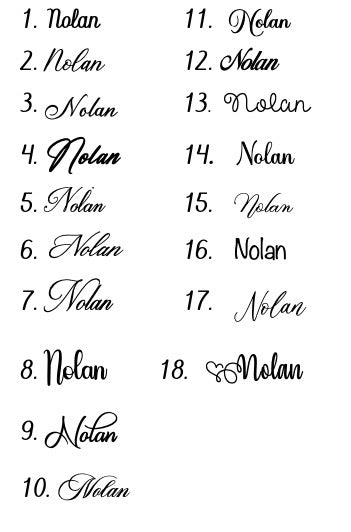 1. Nolan
2. Nolan
3. Nolan
4. Nolan
5. Nolan
6. Nolan
7. Nolan
8. Nolan
9. Nolan
10. Nolan
11. Nolan
12. Nolan
13. Nolan
14. Nolan
15. Nolan
16. Nolan
17. Nolan
18. Nolan